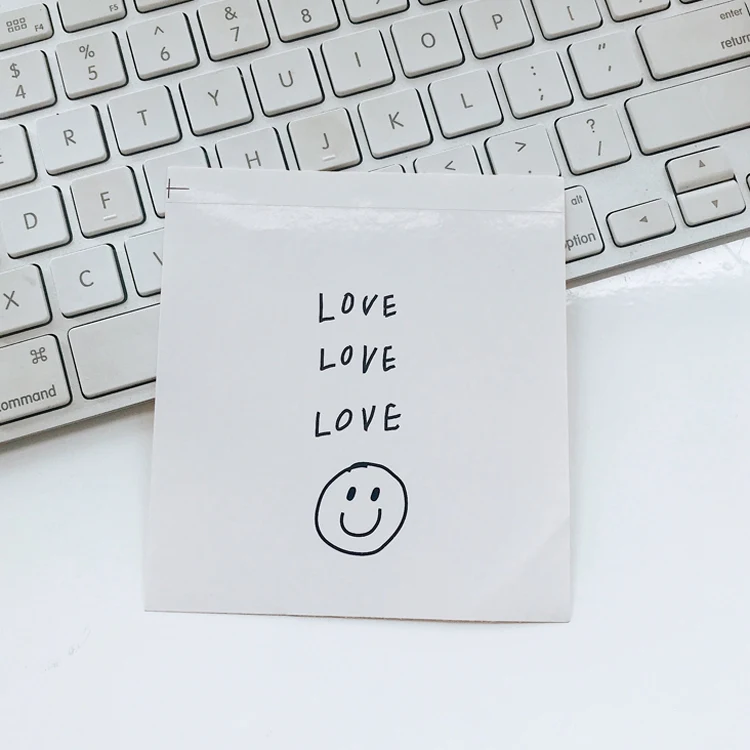 F4 F5
$ % ^ & 8
4 5 6 7
R T Y U I O P [
enter
return
D F H J K L : ; " ,
X C < > ? /
alt
option
⌘
command
LOVE
LOVE
LOVE